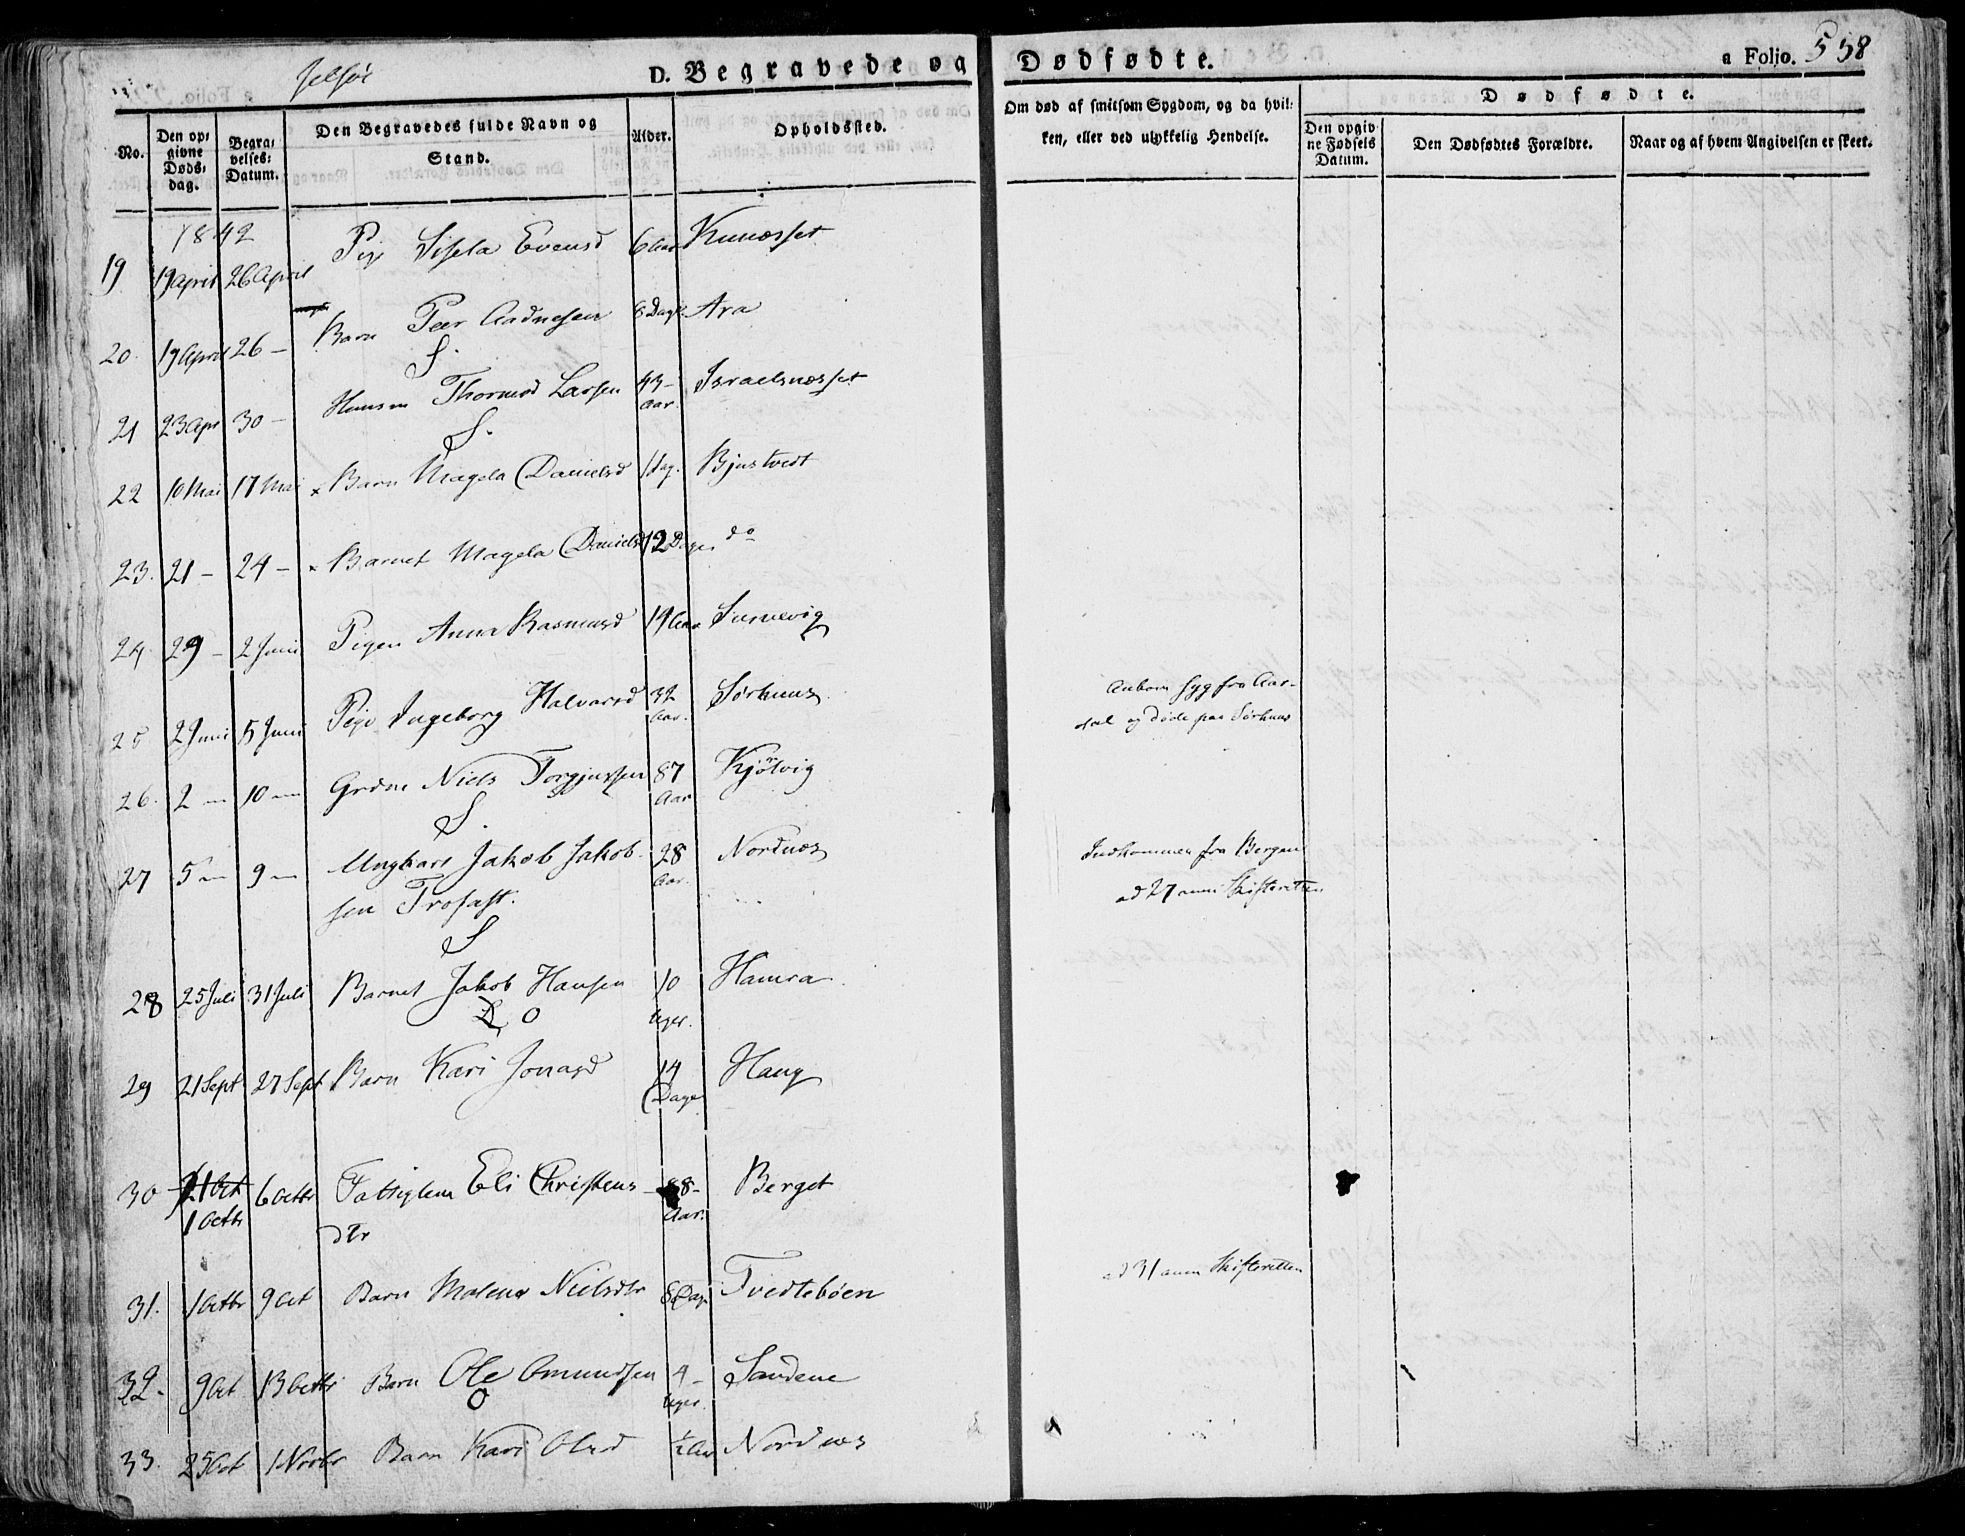 Jelsøe D. Begravede og Dødfødte. a Folio. 558
No. Den opgivne Dødsdag. Begravelses Datum. Den Begravedes fulde Navn og Stand. Alder. Opholdssted. Om død af smitsom Sygdom, og da hvilken, eller ved ulykkelig Hendelse. Dødfødte. Den opgivne Fødsels Datum. Den Dødfødtes Forældre. Naar og af hvem Angivelsen er skeet.
1842
19 19 April 26 April Pige Sisela Evensd 6 Aar
20. 19 April 26 – Barn Peer Aadnesen 8 Dage Ara
S.
21 23 Apr 30 – Thormod Larsen 43– Aar. Israelsnæsset
S.
22 10 Mai 17 Mai × Barn Magela Danielsd 1 dag. Bjustvedt
23. 21 – 24 – × Barnet Magela Danielsd 12 Dage do
24. 29 – 2 Juni Pigen Anna Rasmusd 19 Aar
25 2 Juni 5 Juni Pige Ingeborg Halvorsd 32 Aar. Sørhuus Ankom syg fra Aar-
dal og døde paa Sørhuus
26. 2 – 10 – Niels Torgjussen 87 Aar Kjølvig
S.
27 5 – 9 – Ungkarl Jakob Jakob- 28 Aar. Nordnæs Indkommen fra Bergen
sen Trofast. ad 27 anm Skifteretten
S
28 25 Juli 31 Juli Barnet Jakob Hansen 10 Uger. Hamra
O
29 21 Sept 27 Sept Barn Kari Jonasd 14 Dage Haug
30 21 Oct 6 Octbr Fattiglem Eli Christens- 88– Aar. Berget
1 Octb dtr
31. 1 Octbr 9 Oct Barn Malena Nielsdtr 8 Dage Tvedtebøen ad 31 anm Skifteretten
32. 9 Oct 13 Octbr Barn Ole Omundsen 4– Uger. Sandene
O
33. 25 Oct 1 Novbr Barn Kari Olsd ½ Aar Nordnæs